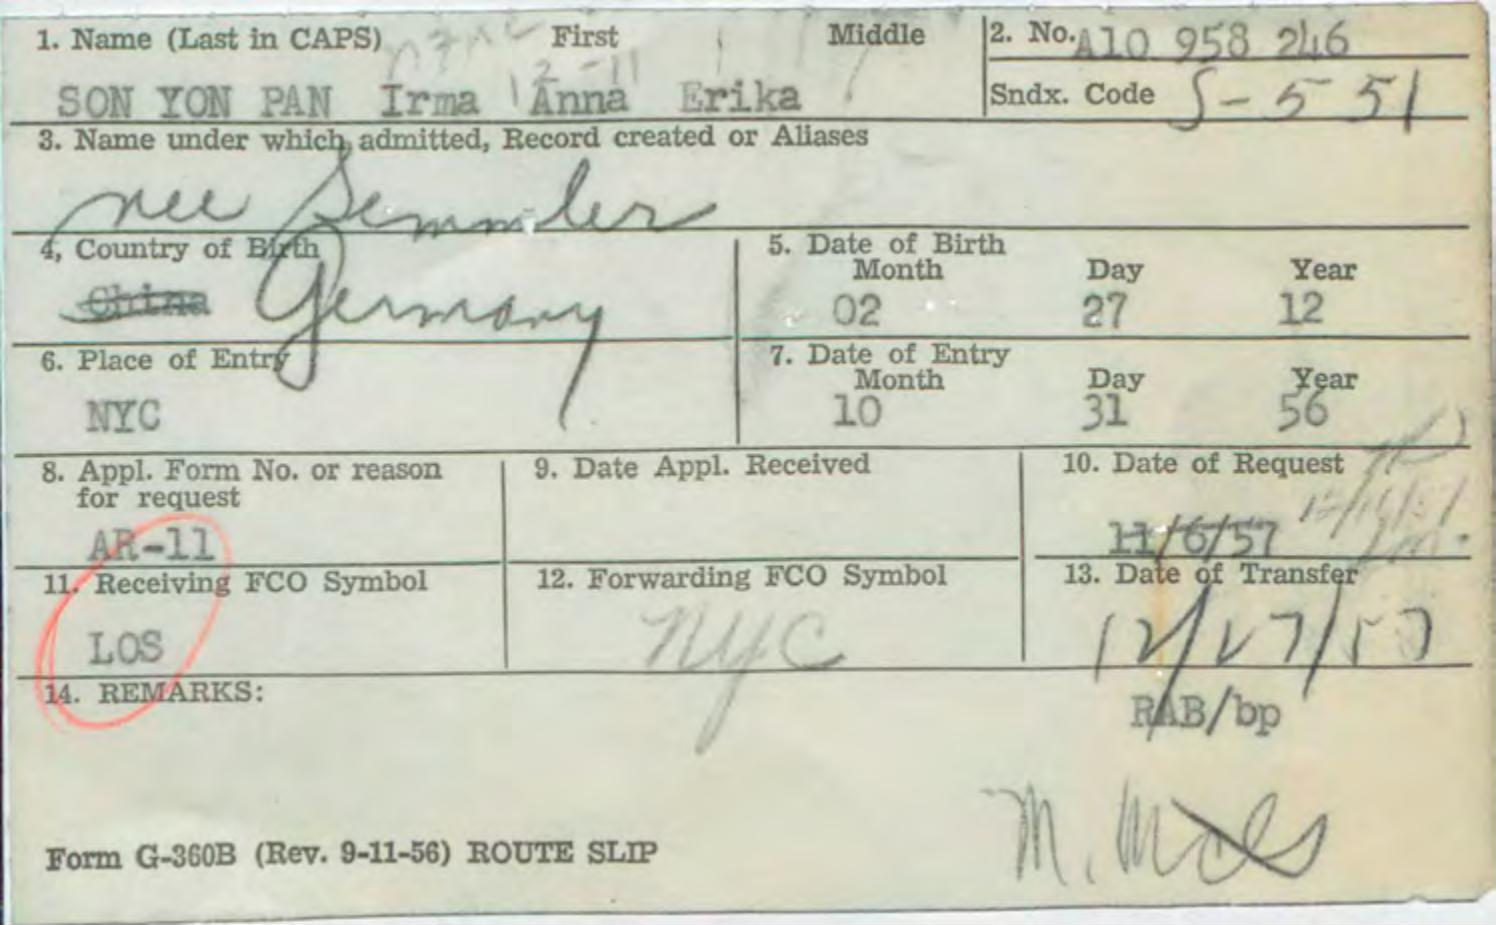 1. Name (Last in CAPS) First Middle
2. No. A10 958 246
SON YON PAN Irma Anna Erika
Sndx. Code S-551
3. Name under which admitted, Record created or Aliases
nee Semmler
4, Country of Birth
China Germany
5. Date of Birth
Month Day Year
02 27 12
6. Place of Entry
NYC
7. Date of Entry
Month Day Year
10 31 56
8. Appl. Form No. or reason
for request
AR-11
9. Date Appl. Received
10. Date of Request
11/6/57
11. Receiving FCO Symbol
LOS
12. Forwarding FCO Symbol
NYC
13. Date of Transfer
12/27/57
14. REMARKS:
RAB/bp
M.
Form G-360B (Rev. 9-11-56) ROUTE SLIP